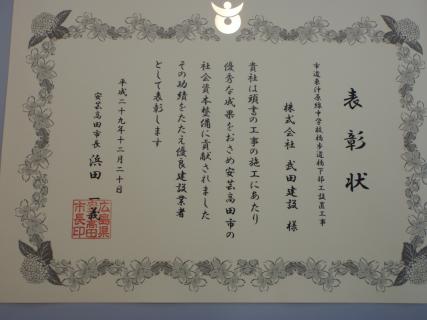 表彰状
市道東沖原線中学校橋歩道橋下部工設置工事
株式会社 武田建設 様
貴社は頭書の工事の施工にあたり
優秀な成果をおさめ安芸高田市の
社会資本整備に貢献されました
その功績をたたえ優良建設業者
として表彰します
平成二十九年十二月二十日
安芸高田市長 浜田 一義
広島県
安芸高田
市長印